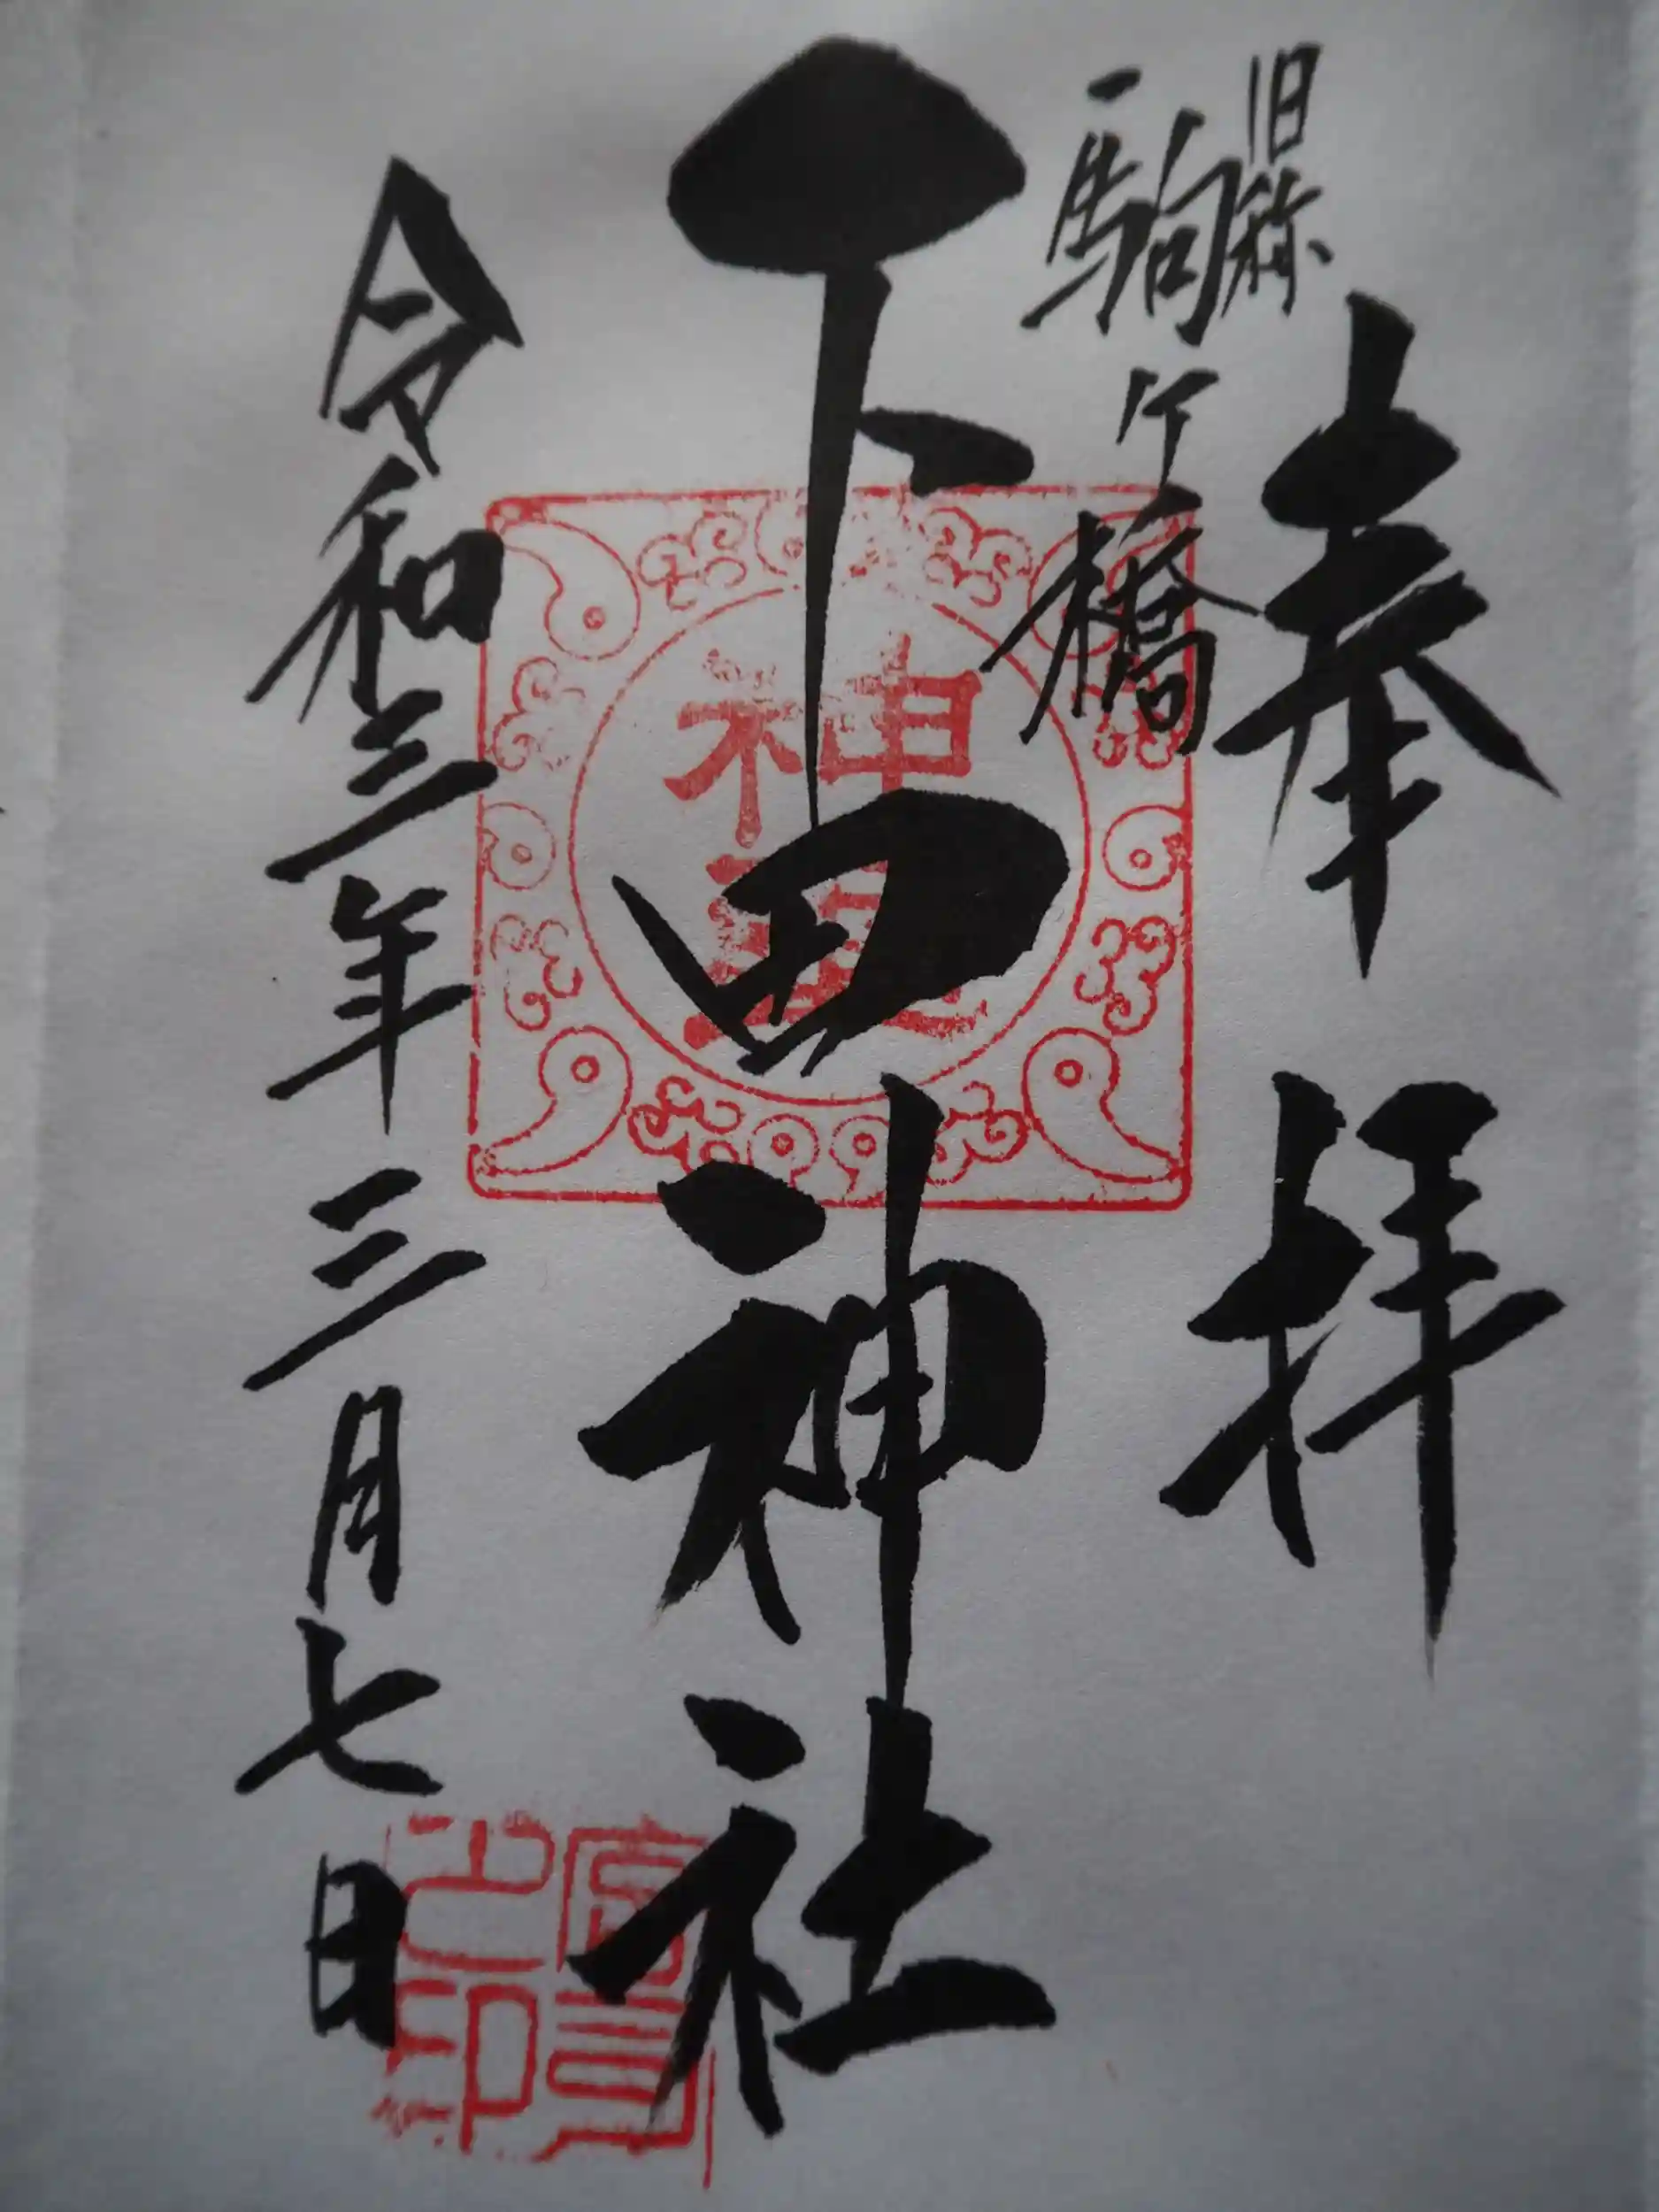 奉拝
旧称
駒ケ橋
下田神社
神璽
令和三年三月七日
宮司之印